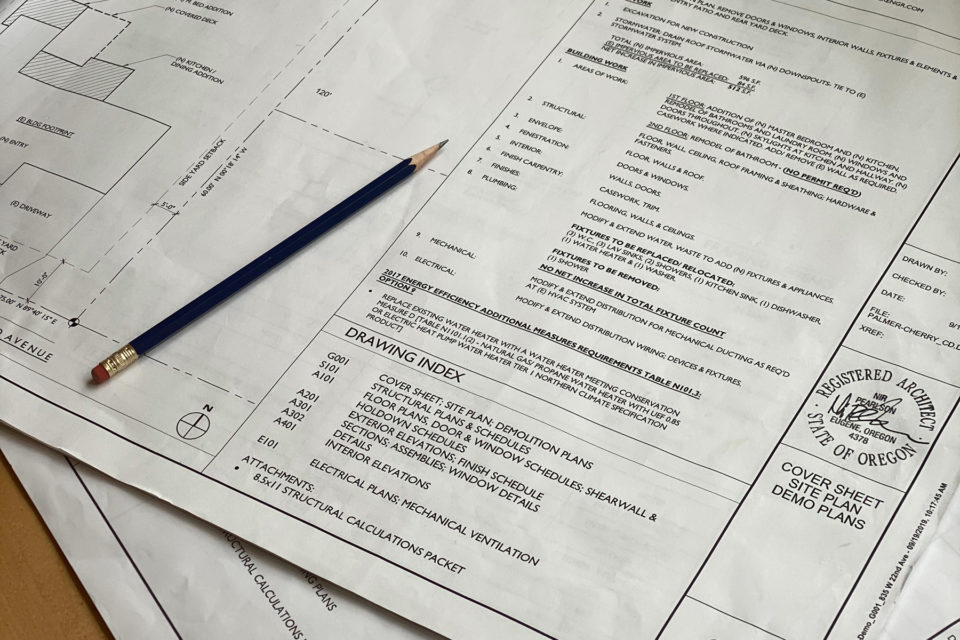 M. BED ADDITION
(N) COVERED DECK
(N) KITCHEN /
DINING ADDITION
(E) BLDG FOOTPRINT
(N) ENTRY
(E) DRIVEWAY
YARD
BACK
SIDE YARD SETBACK
60.00' N 00° 18' 14" W
120'
5'-0"
N 89° 40' 15" E
AVENUE
N
PLAN, REMOVE DOORS & WINDOWS, INTERIOR WALLS, FIXTURES & ELEMENTS &
ENTRY PATIO AND REAR YARD DECK.
WORK
1. EXCAVATION FOR NEW CONSTRUCTION
2. STORMWATER: DRAIN ROOF STORMWATER VIA (N) DOWNSPOUTS: TIE TO (E)
STORMWATER SYSTEM.
TOTAL (N) IMPERVIOUS AREA: 596 S.F.
(E) IMPERVIOUS AREA TO BE REPLACED: 84 S.F.
NET INCREASE IN IMPERVIOUS AREA: 512 S.F.
BUILDING WORK
1. AREAS OF WORK:
1ST FLOOR: ADDITION OF (N) MASTER BEDROOM AND (N) KITCHEN,
REMODEL OF BATHROOMS AND LAUNDRY ROOM, (N) WINDOWS AND
DOORS THROUGHOUT, (N) SKYLIGHTS AT KITCHEN AND HALLWAY, (N)
CASEWORK WHERE INDICATED. ADD/ REMOVE (E) WALL AS REQUIRED.
2ND FLOOR: REMODEL OF BATHROOM - (NO PERMIT REQ'D)
2. STRUCTURAL: FLOOR, WALL, CEILING, ROOF FRAMING & SHEATHING; HARDWARE &
FASTENERS.
3. ENVELOPE: FLOOR, WALLS & ROOF.
4. FENESTRATION: DOORS & WINDOWS.
5. INTERIOR: WALLS, DOORS.
6. FINISH CARPENTRY: CASEWORK, TRIM.
7. FINISHES: FLOORING, WALLS, & CEILINGS.
8. PLUMBING: MODIFY & EXTEND WATER, WASTE TO ADD (N) FIXTURES & APPLIANCES.
FIXTURES TO BE REPLACED/ RELOCATED:
(3) W.C., (3) LAV SINKS, (2) SHOWERS, (1) KITCHEN SINK, (1) DISHWASHER,
(1) WATER HEATER & (1) WASHER.
FIXTURES TO BE REMOVED:
(1) SHOWER
NO NET INCREASE IN TOTAL FIXTURE COUNT
9. MECHANICAL: MODIFY & EXTEND DISTRIBUTION FOR MECHANICAL DUCTING AS REQ'D
AT (E) HVAC SYSTEM
10. ELECTRICAL: MODIFY & EXTEND DISTRIBUTION WIRING; DEVICES & FIXTURES.
2017 ENERGY EFFICIENCY ADDITIONAL MEASURES REQUIREMENTS TABLE N1101.3:
• REPLACE EXISTING WATER HEATER WITH A WATER HEATER MEETING CONSERVATION
MEASURE D [TABLE N1101.1(2) - NATURAL GAS/ PROPANE WATER HEATER WITH UEF 0.85
OR ELECTRIC HEAT PUMP WATER HEATER TIER 1 NORTHERN CLIMATE SPECIFICATION
PRODUCT]
DRAWING INDEX
G001 COVER SHEET; SITE PLAN; DEMOLITION PLANS
S101 STRUCTURAL PLANS & SCHEDULES
A101 FLOOR PLANS, DOOR & WINDOW SCHEDULES; SHEARWALL &
HOLDOWN SCHEDULES
A201 EXTERIOR ELEVATIONS; FINISH SCHEDULE
A301 SECTIONS; ASSEMBLIES; WINDOW DETAILS
A302 DETAILS
A401 INTERIOR ELEVATIONS
E101 ELECTRICAL PLANS; MECHANICAL VENTILATION
ATTACHMENTS:
• 8.5x11 STRUCTURAL CALCULATIONS PACKET
DRAWN BY:
CHECKED BY:
DATE:
FILE:
PALMER-CHERRY_CD
XREF:
REGISTERED ARCHITECT
NIR
PEARLSON
EUGENE, OREGON
4378
STATE OF OREGON
COVER SHEET
SITE PLAN
DEMO PLANS
Demo_G001_835 W 22nd Ave - 09/19/2019, 10:17:45 AM
PLANS
CALCULATIONS